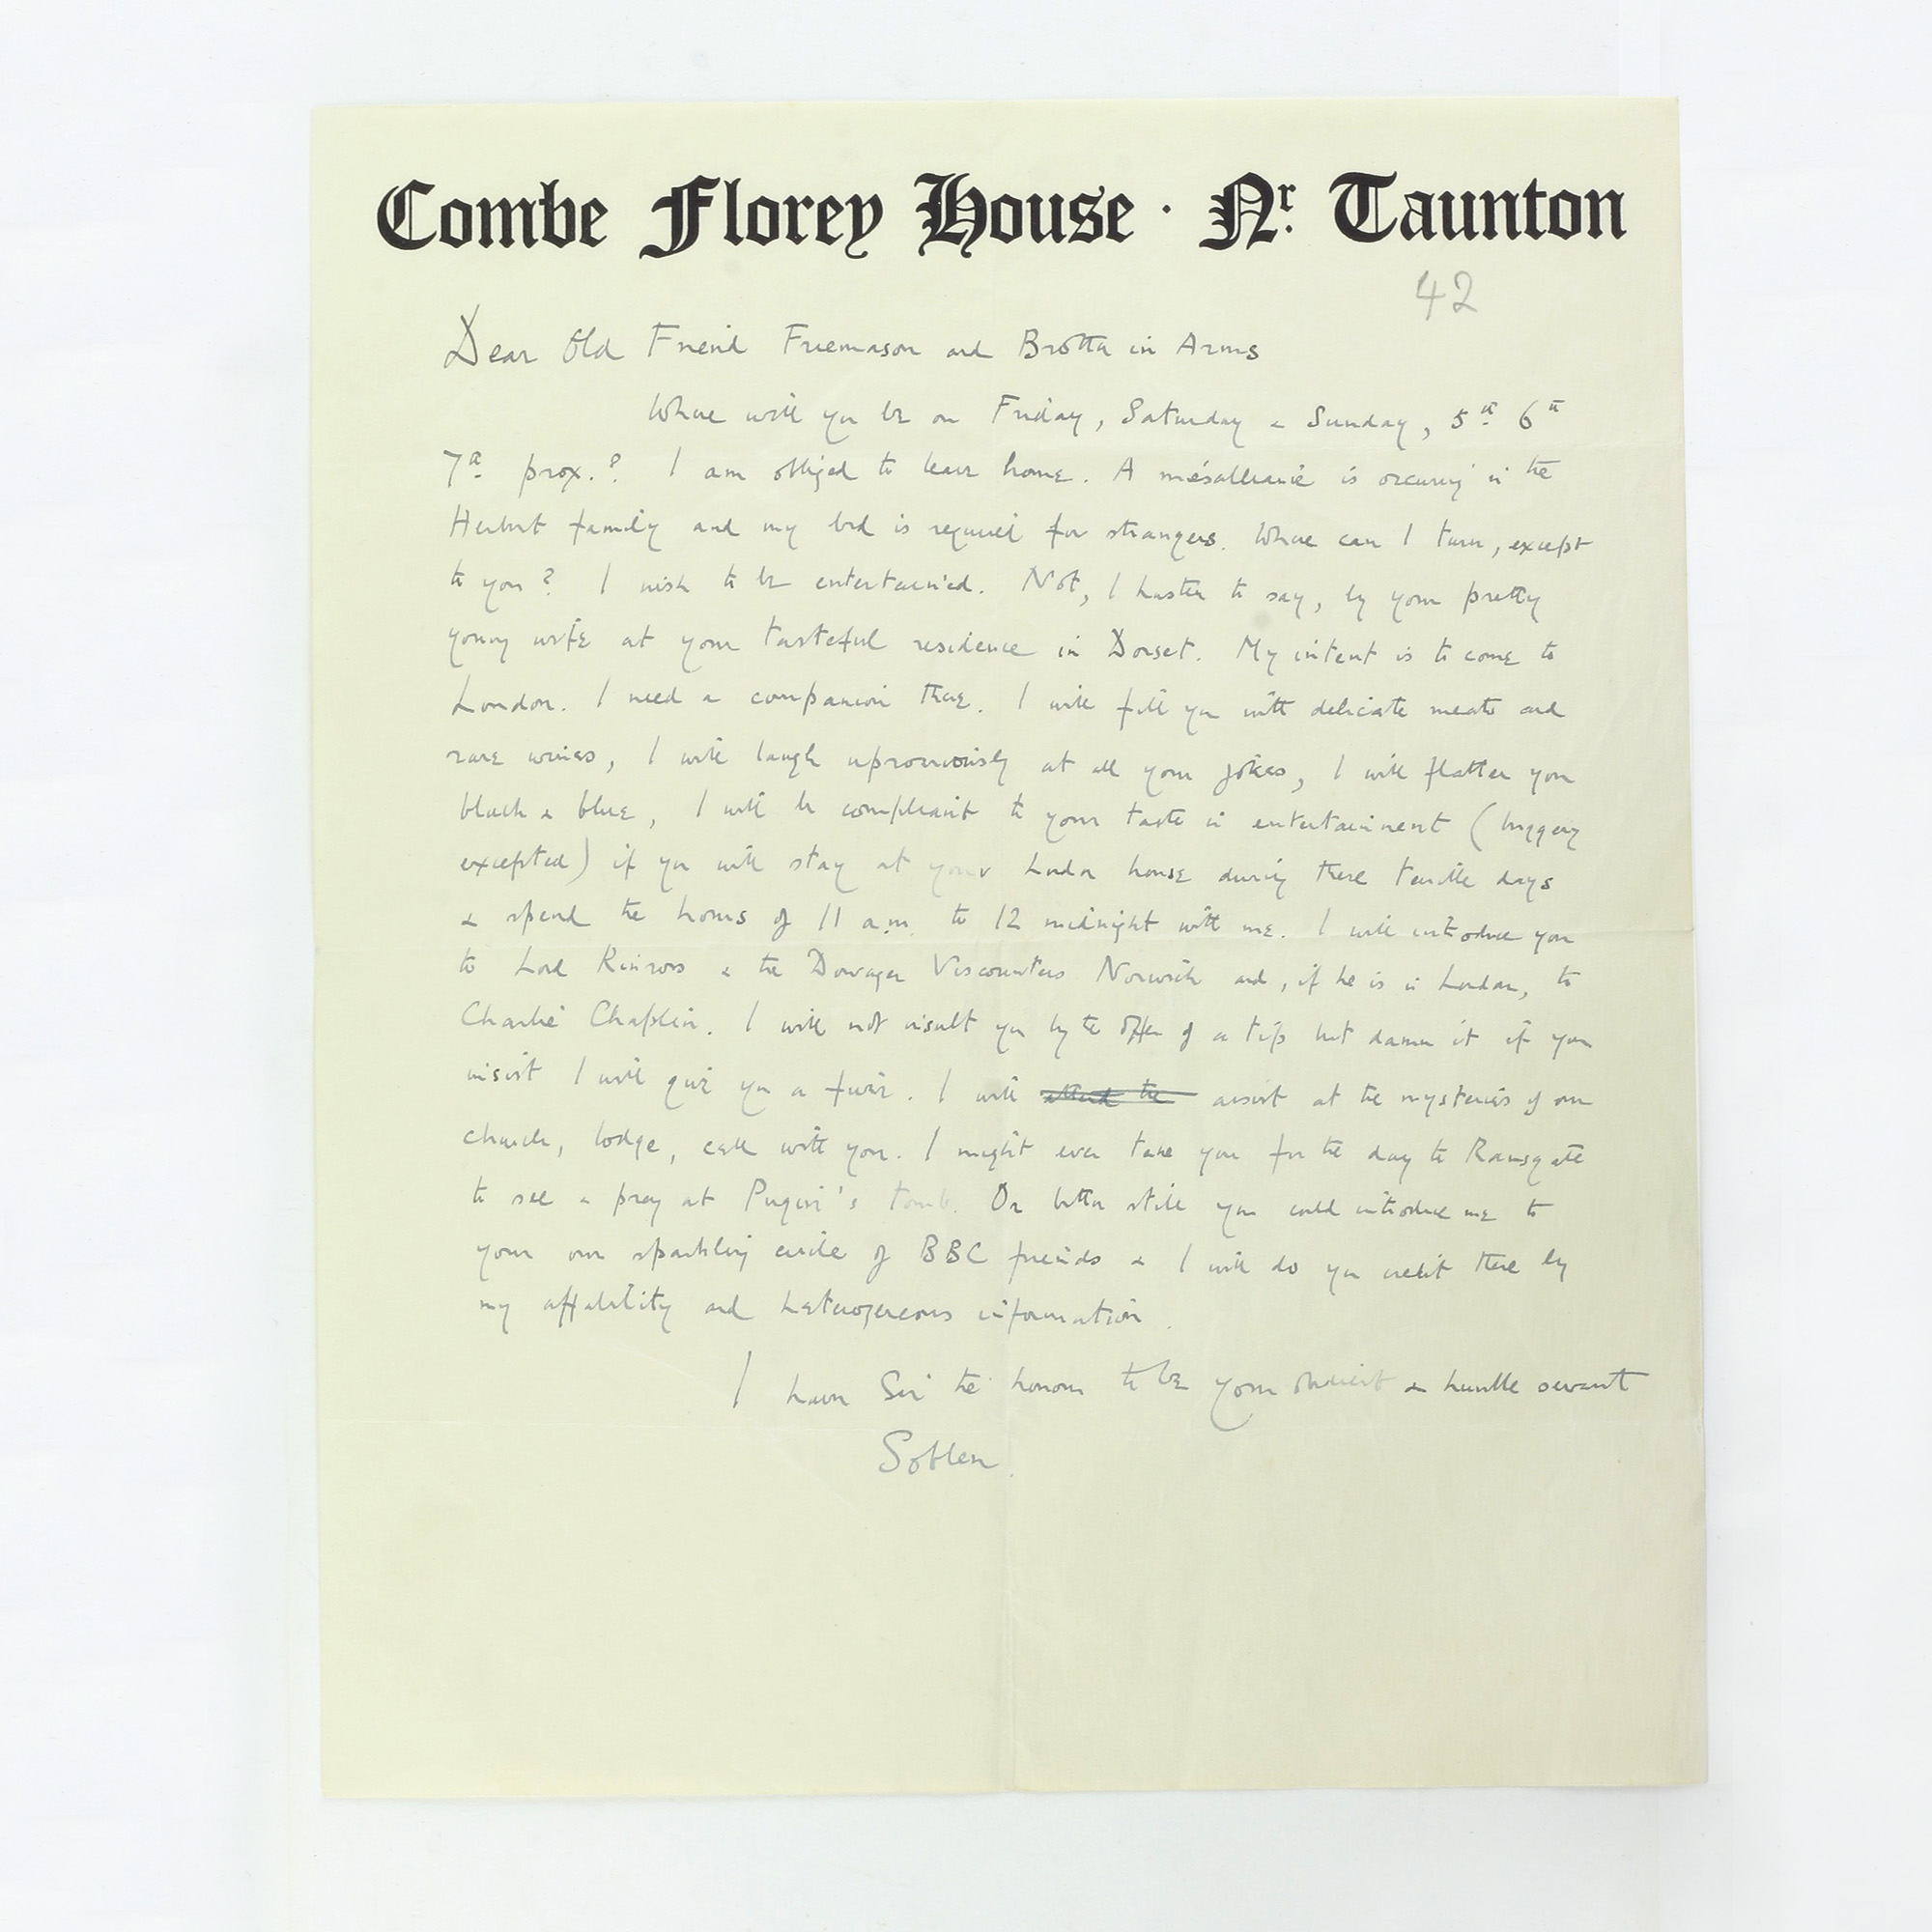 Combe Florey House · Nr. Taunton
42
Dear Old Friend Freemason and Brother in Arms
Where will you be on Friday, Saturday & Sunday, 5th 6th
7th prox.? I am obliged to leave home. A mésalliance is occuring in the
Herbert family and my bed is required for strangers. Where can I turn, except
to you? I wish to be entertained. Not, I hasten to say, by your pretty
young wife at your tasteful residence in Dorset. My intent is to come to
London. I need a companion there. I will fill you with delicate meats and
rare wines, I will laugh uproariously at all your jokes, I will flatter you
black & blue, I will be compliant to your taste in entertainment (buggery
excepted) if you will stay at your London house during these terrible days
& spend the hours of 11 a.m. to 12 midnight with me. I will introduce you
to Lord Kinross & the Dowager Viscountess Norwich and, if he is in London, to
Charlie Chaplin. I will not insult you by the offer of a tip but damn it if you
insist I will give you a fiver. I will attend the assist at the mysteries of our
church, lodge, cell with you. I might even take you for the day to Ramsgate
to see & pray at Pugin's tomb. Or better still you could introduce me to
your own sparkling circle of BBC friends & I will do you credit there by
my affability and heterogeneous information.
I have Sir the honour to be your obedient & humble servant
Soblen.